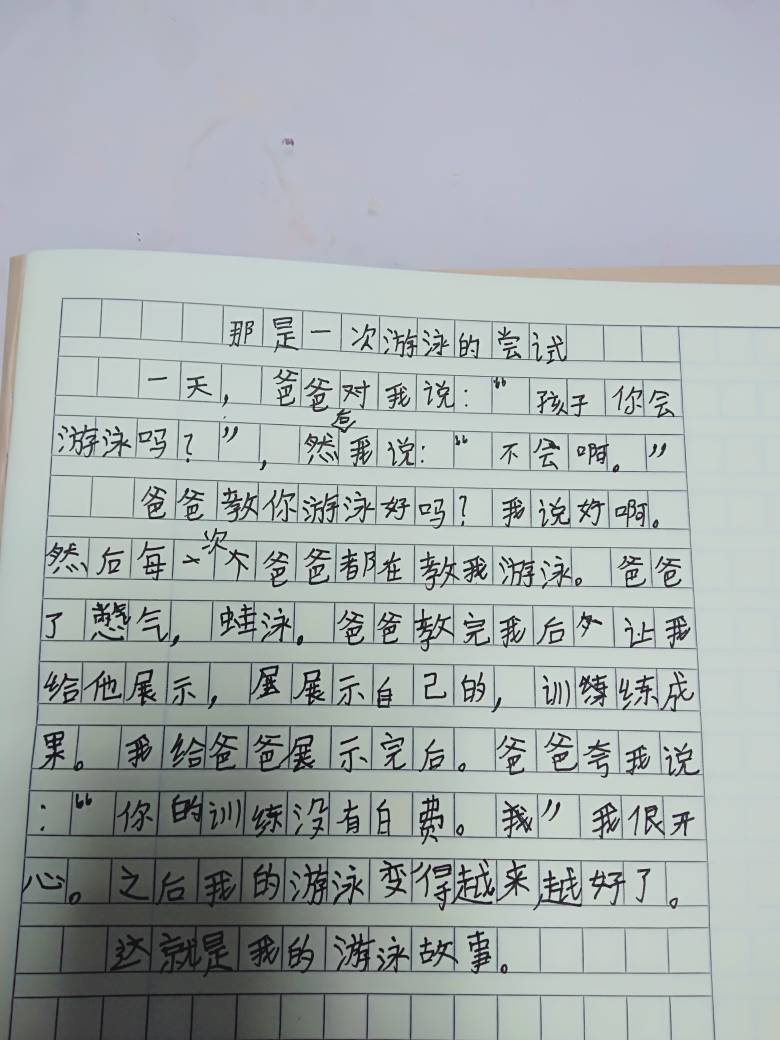 那是一次游泳的尝试
一天，爸爸对我说：“孩子你会
游泳吗？”，然后我说：“不会啊。”
爸爸教你游泳好吗？我说好啊。
然后每一次爸爸都在教我游泳。爸爸
了憋气，蛙泳。爸爸教完我后让我
给他展示，展示自己的，训练成
果。我给爸爸展示完后。爸爸夸我说
：“你的训练没有白费。”我很开
心。之后我的游泳变得越来越好了。
这就是我的游泳故事。